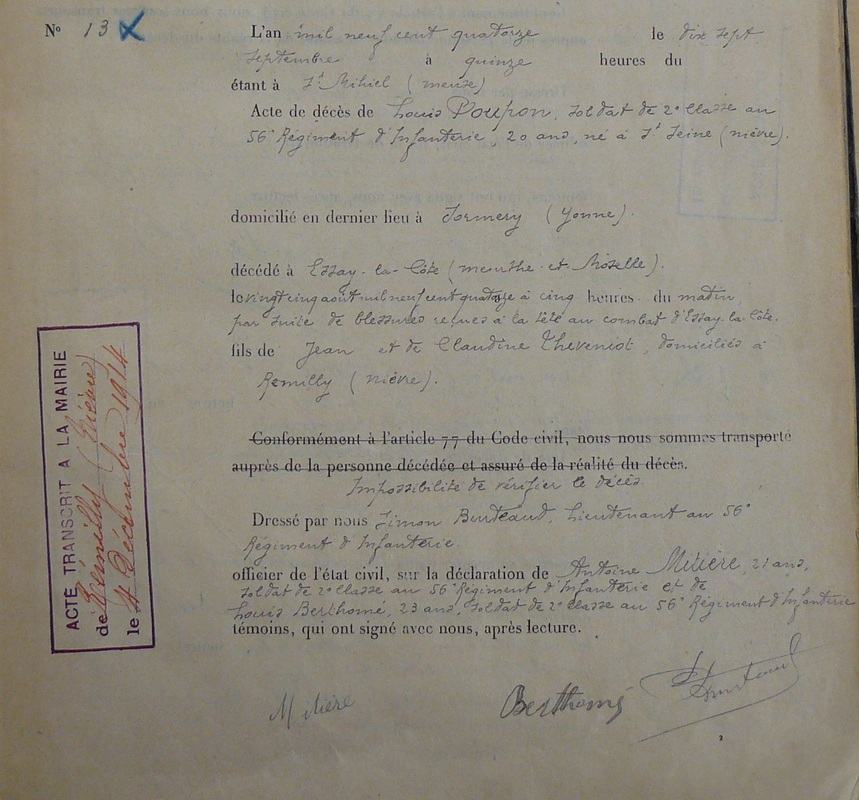 N° 13 X
L'an mil neuf cent quatorze le dix sept
septembre à quinze heures du
étant à St Mihiel (meuse)
Acte de décès de Louis Poupon, soldat de 2e Classe au
56e Régiment d'Infanterie, 20 ans, né à St Seine (nièvre).
domicilié en dernier lieu à Sormery (Yonne).
décédé à Essey-la-Côte (meurthe et Moselle).
le vingt cinq août mil neuf cent quatorze à cinq heures du matin
par suite de blessures reçues à la tête au combat d'Essey-la-Côte.
fils de Jean et de Claudine Theveniot, domiciliés à
Remilly (nièvre).
Conformément à l'article 77 du Code civil, nous nous sommes transporté
auprès de la personne décédée et assuré de la réalité du décès.
Impossibilité de vérifier le décès
Dressé par nous Simon Berteaud, Lieutenant au 56e
Régiment d'Infanterie.
officier de l'état civil, sur la déclaration de Antoine Mitière, 21 ans,
soldat de 2e classe au 56e Régiment d'Infanterie et de
Louis Berthomé, 23 ans, soldat de 2e Classe au 56e Régiment d'Infanterie
témoins, qui ont signé avec nous, après lecture.
Mitière Berthomé
2
ACTE TRANSCRIT A LA MAIRIE
de Rémilly (Nièvre)
le 4 Décembre 1914